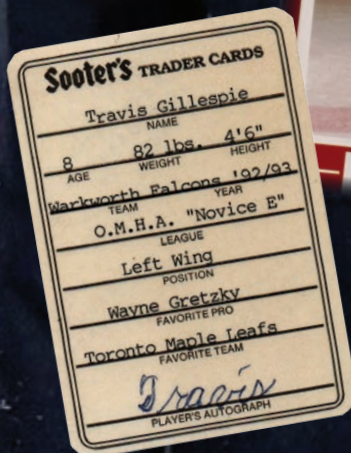 Sooter's TRADER CARDS
Travis Gillespie
NAME
8 82 lbs. 4'6"
AGE WEIGHT HEIGHT
Warkworth Falcons '92/93
TEAM YEAR
O.M.H.A. "Novice E"
LEAGUE
Left Wing
POSITION
Wayne Gretzky
FAVORITE PRO
Toronto Maple Leafs
FAVORITE TEAM
Travis
PLAYER'S AUTOGRAPH